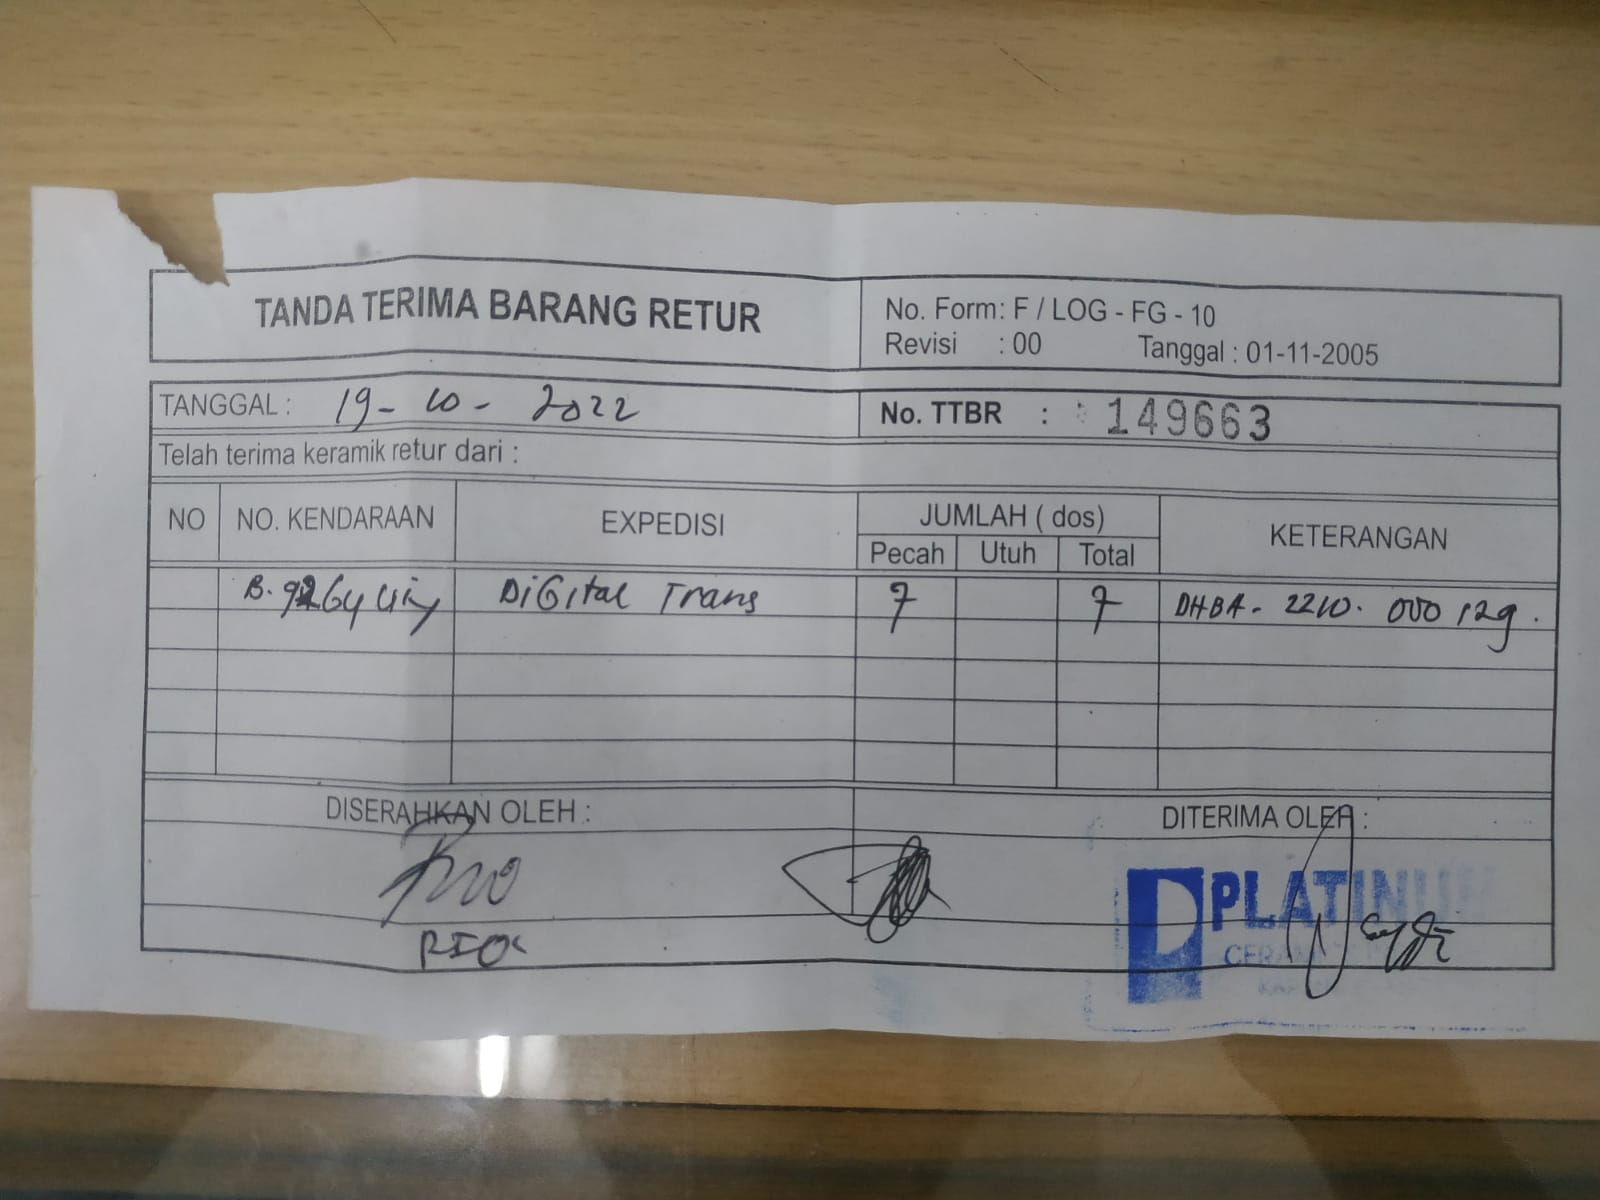 TANDA TERIMA BARANG RETUR
No. Form: F / LOG - FG - 10
Revisi : 00 Tanggal : 01-11-2005
TANGGAL : 19 - 10 - 2022
No. TTBR : 149663
Telah terima keramik retur dari :
NO NO. KENDARAAN EXPEDISI JUMLAH ( dos) KETERANGAN
Pecah Utuh Total
Digital Trans 7 7 DHBA - 2210. 000 129.
DISERAHKAN OLEH : DITERIMA OLEH :
PLATINUM
RIO